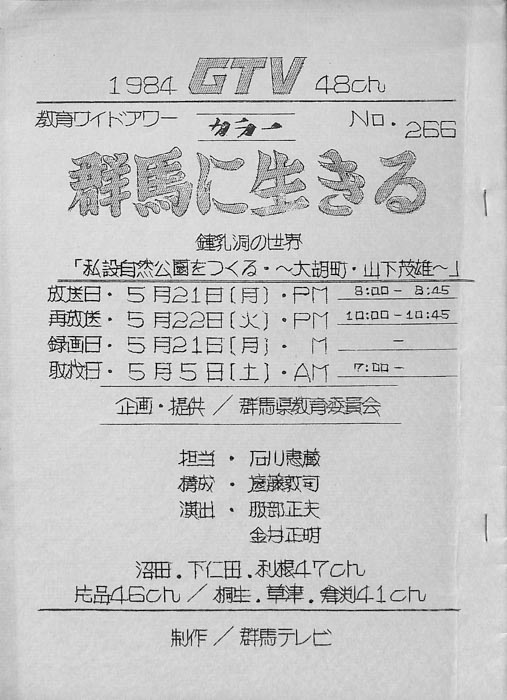 1984 GTV 48ch
教育ワイドアワー カラー No. 266
群馬に生きる
鍾乳洞の世界
「私設自然公園をつくる・〜大胡町・山下茂雄〜」
放送日・5月21日(月)・PM 8:00 - 8:45
再放送・5月22日(火)・PM 10:00 - 10:45
録画日・5月21日(月)・ M -
取材日・5月5日(土)・AM 7:00 -
企画・提供/群馬県教育委員会
担当・石川恵蔵
構成・遠藤敦司
演出・服部正夫
金井正明
沼田.下仁田.利根47ch
片品46ch/桐生.草津.倉渕41ch
制作/群馬テレビ